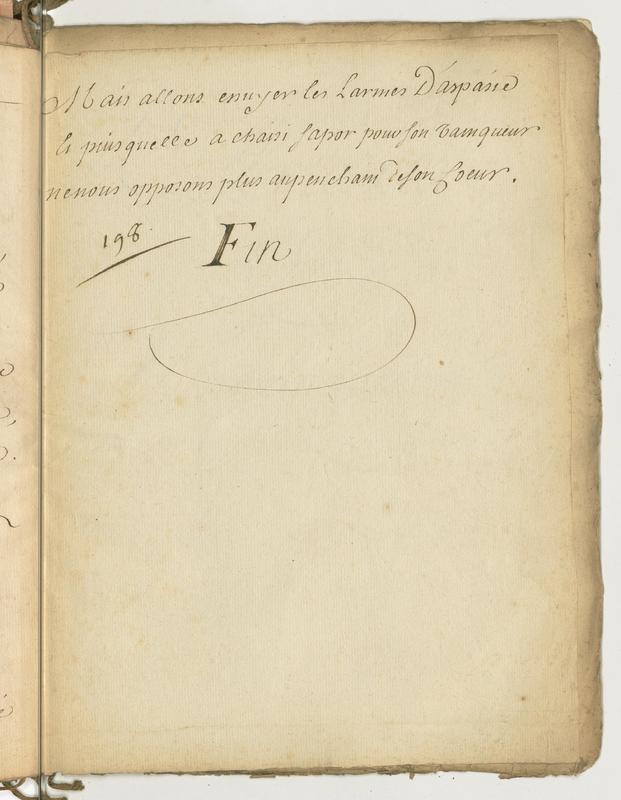 Mais allons essuyer les Larmes D'aspasie
Et puisquelle a choisi sapor pour son Vainqueur
ne nous opposons plus au penchant de son Coeur.
198
Fin